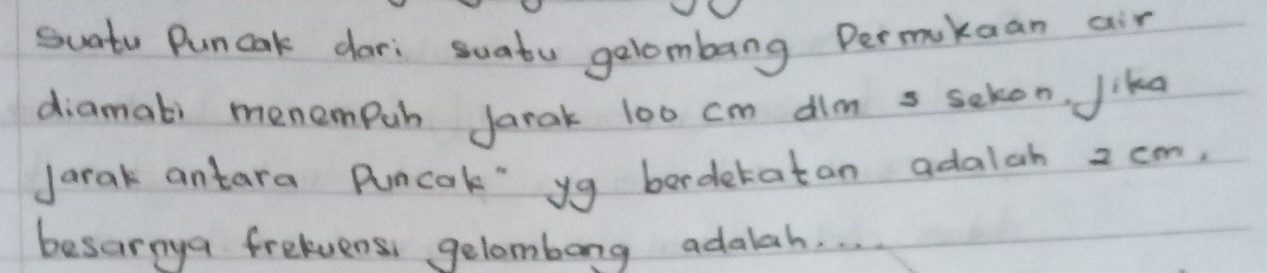 suatu Puncak dari suatu gelombang Permukaan air
diamati menempuh Jarak 100 cm dlm s sekon. Jika
Jarak antara Puncak" yg berdekatan adalah 2 cm.
besarnya frekuensi gelombang adalah....